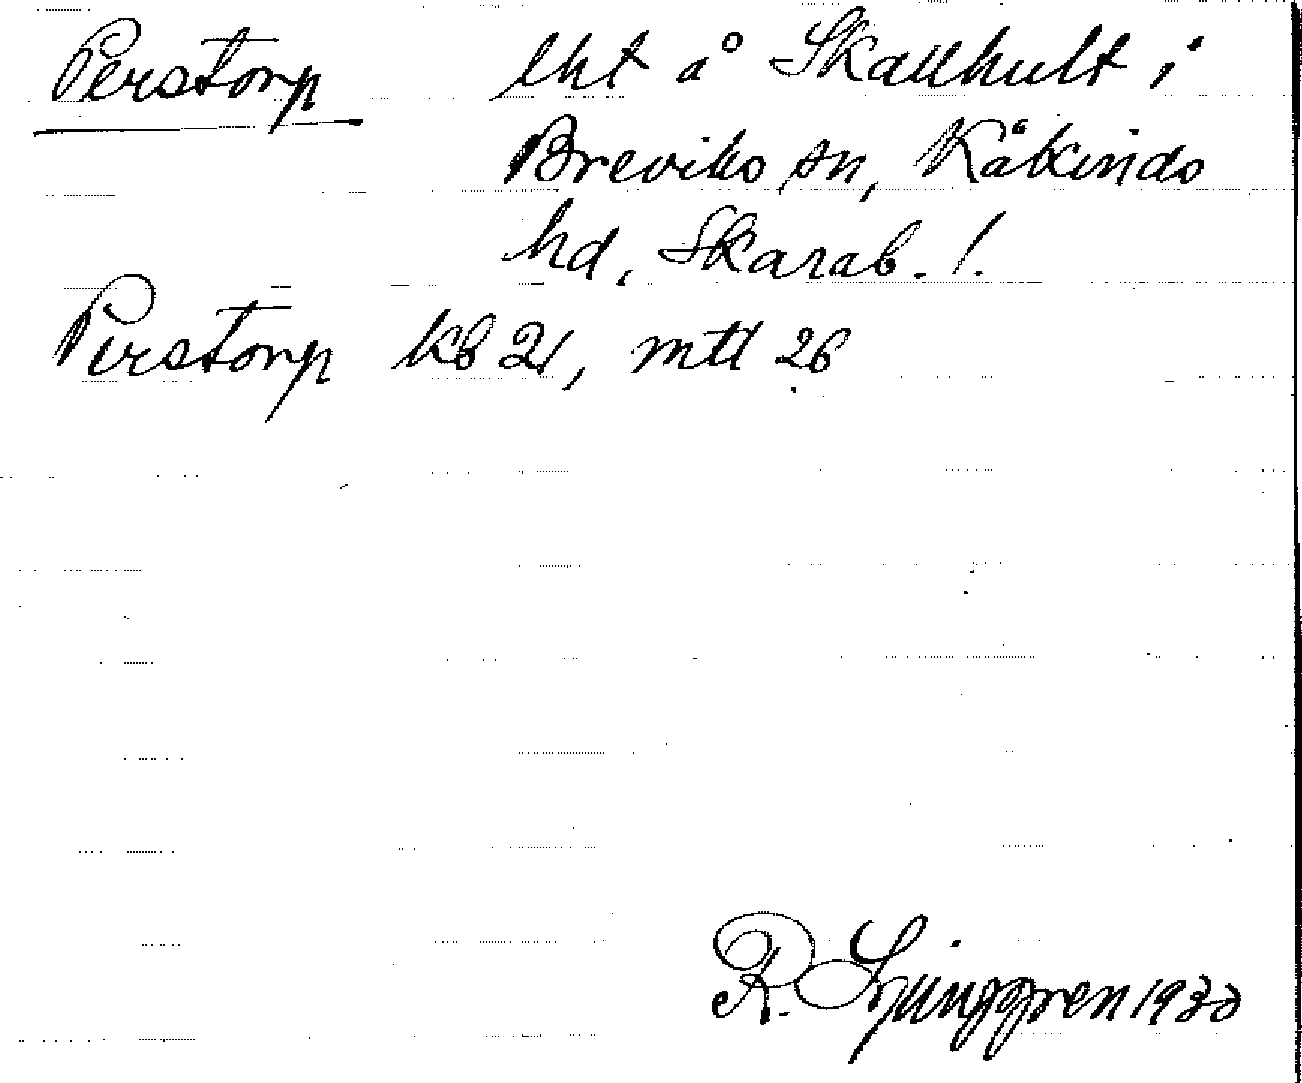 Perstorp lht å Skallhult i
Breviks sn, Kåkinds
hd, Skarab. l.
Perstorp kb 21, mtl 26
R. Ljunggren 1933